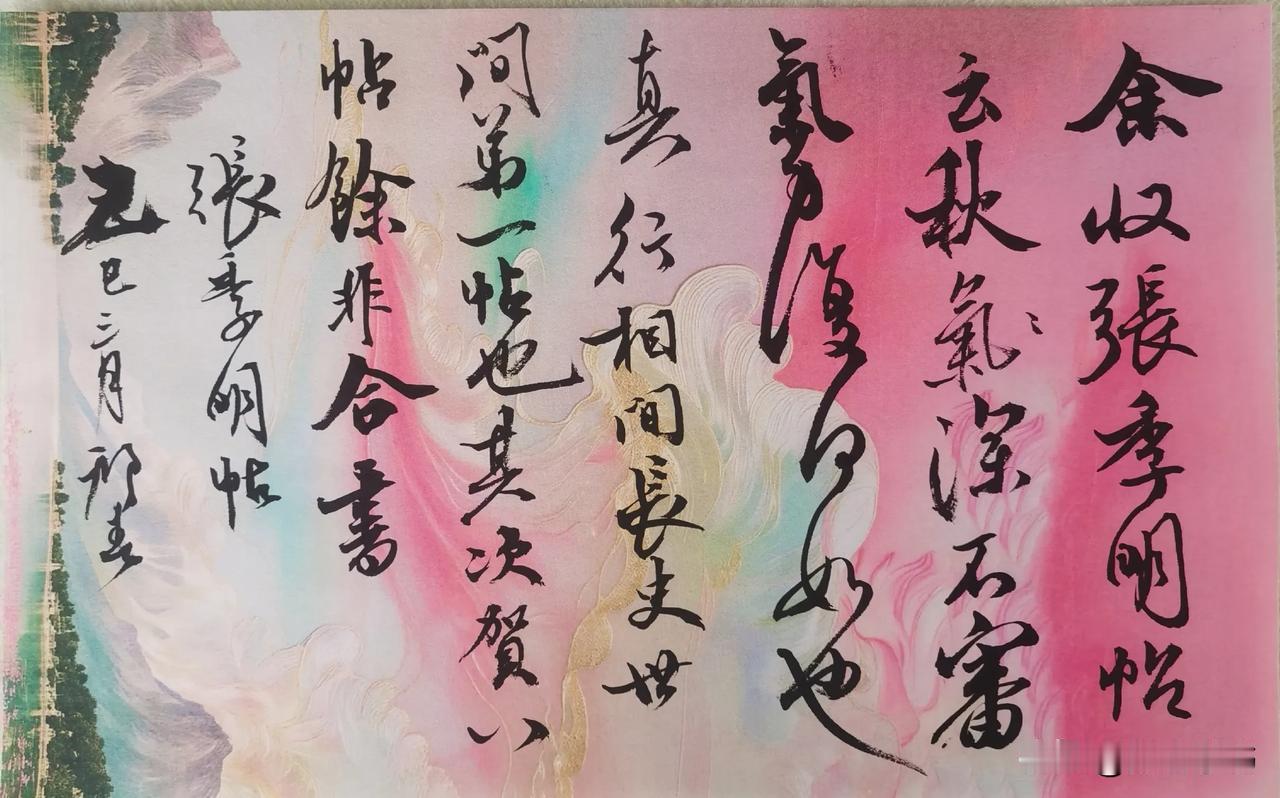 余收張季明帖
云秋氣深不審
氣力復何如也
真行相間長史世
間第一帖也其次賀八
帖餘非合書
張季明帖
巳三月